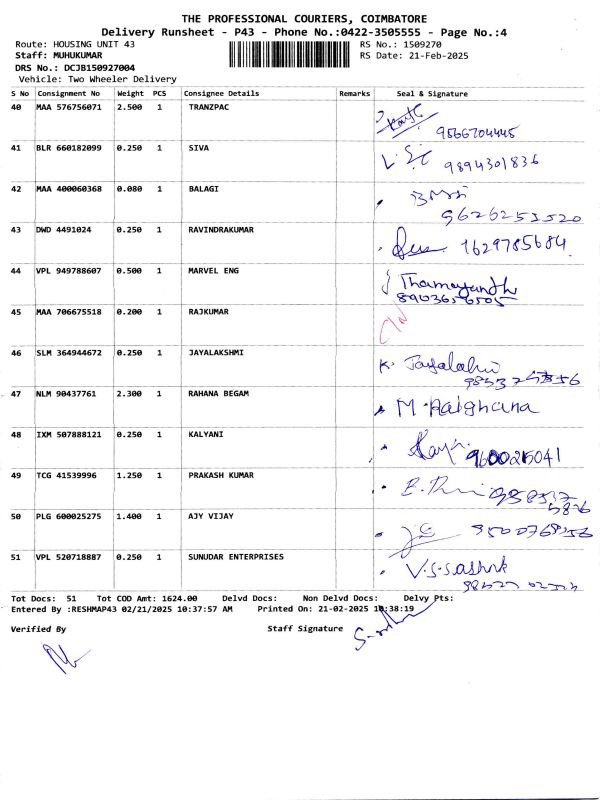 THE PROFESSIONAL COURIERS, COIMBATORE
Delivery Runsheet - P43 - Phone No.:0422-3505555 - Page No.:4
Route: HOUSING UNIT 43 RS No.: 1509270
Staff: MUHUKUMAR RS Date: 21-Feb-2025
DRS No.: DCJB150927004
Vehicle: Two Wheeler Delivery
S No Consignment No Weight PCS Consignee Details Remarks Seal & Signature
40 MAA 576756071 2.500 1 TRANZPAC
9566704445
41 BLR 660182099 0.250 1 SIVA
9894301836
42 MAA 400060368 0.080 1 BALAGI
9626253520
43 DWD 4491024 0.250 1 RAVINDRAKUMAR
1629785684
44 VPL 949788607 0.500 1 MARVEL ENG Thamayandhi
8903656505
45 MAA 706675518 0.200 1 RAJKUMAR
46 SLM 364944672 0.250 1 JAYALAKSHMI K. Jayalakmi
47 NLM 90437761 2.300 1 RAHANA BEGAM M. Raighana
48 IXM 507888121 0.250 1 KALYANI
49 TCG 41539996 1.250 1 PRAKASH KUMAR
50 PLG 600025275 1.400 1 AJY VIJAY
51 VPL 520718887 0.250 1 SUNUDAR ENTERPRISES V.S.Sashok
Tot Docs: 51 Tot COD Amt: 1624.00 Delvd Docs: Non Delvd Docs: Delvy Pts:
Entered By :RESHMAP43 02/21/2025 10:37:57 AM Printed On: 21-02-2025 10:38:19
Verified By Staff Signature